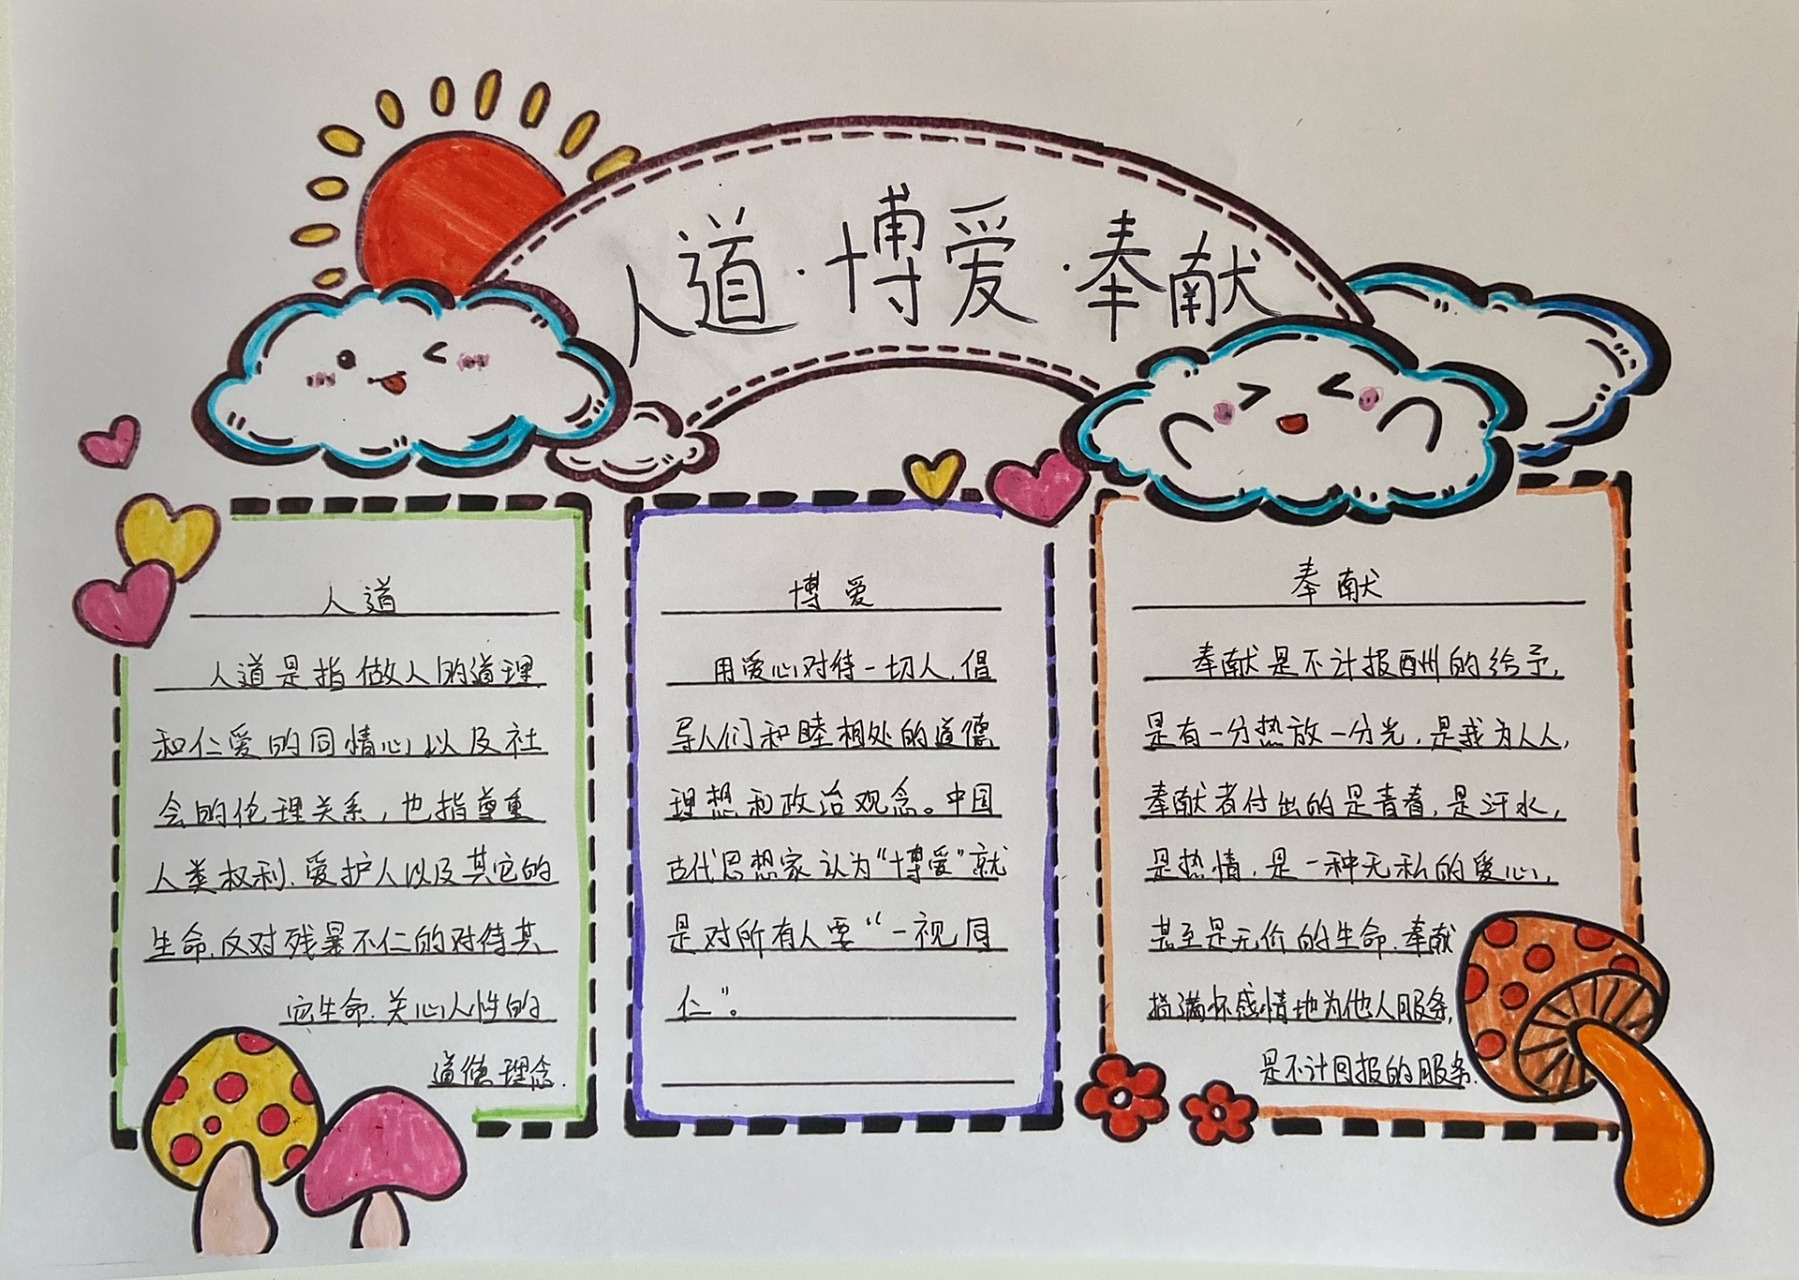 人道·博爱·奉献
人道
人道是指做人的道理
和仁爱的同情心以及社
会的伦理关系，也指尊重
人类权利、爱护人以及其它的
生命、反对残暴不仁的对待其
它生命、关心人性的
道德理念.
博爱
用爱心对待一切人，倡
导人们和睦相处的道德
理想和政治观念。中国
古代思想家认为“博爱”就
是对所有人要“一视同
仁”。
奉献
奉献是不计报酬的给予，
是有一分热放一分光，是我为人人，
奉献者付出的是青春，是汗水，
是热情，是一种无私的爱心，
甚至是无价的生命.奉献
指满怀感情地为他人服务，
是不计回报的服务.